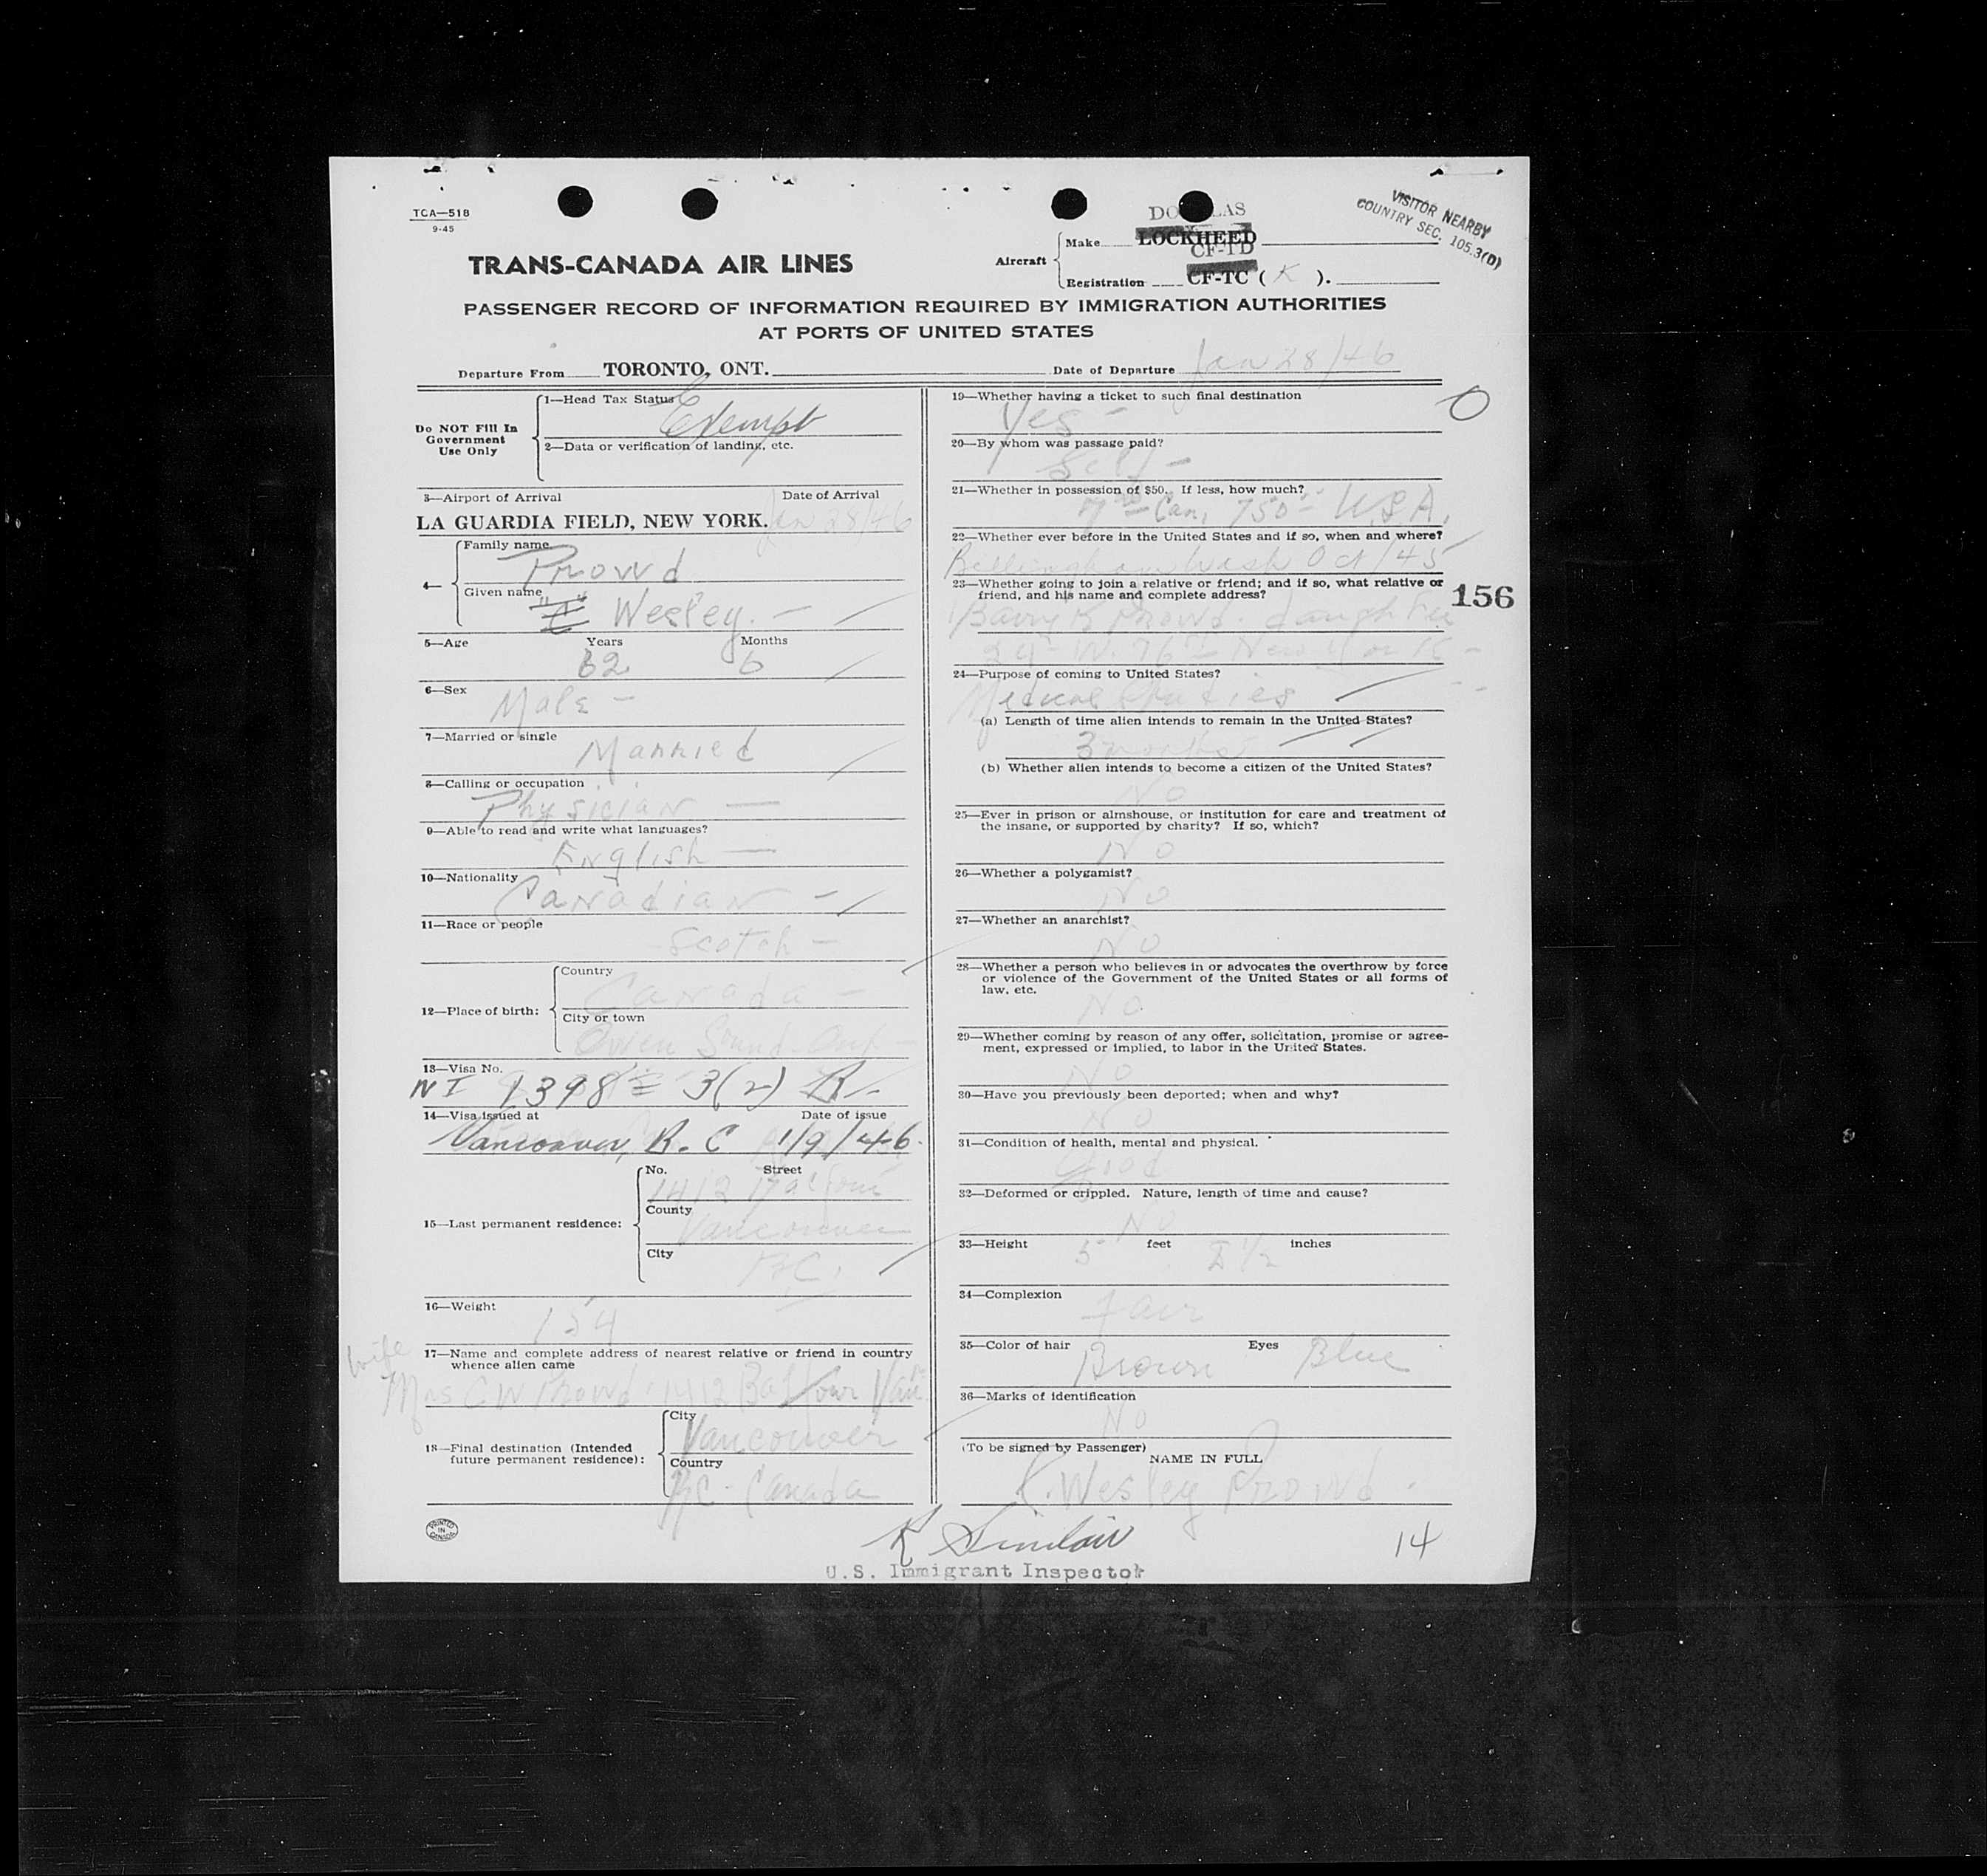 TCA—518
9-45
DOUGLAS
VISITOR NEARBY
COUNTRY SEC. 105.3(D)
Aircraft
Make LOCKHEED
CF-TD
Registration CF-TC ( K ).
TRANS-CANADA AIR LINES
PASSENGER RECORD OF INFORMATION REQUIRED BY IMMIGRATION AUTHORITIES
AT PORTS OF UNITED STATES
Departure From TORONTO, ONT.
Date of Departure Jan 28/46
Do NOT Fill In
Government
Use Only
1—Head Tax Status
Exempt
2—Data or verification of landing, etc.
3—Airport of Arrival Date of Arrival
LA GUARDIA FIELD, NEW YORK. Jan 28/46
4—
Family name
Prowd
Given name
Wesley. —
5—Age Years Months
62 6
6—Sex
Male —
7—Married or single
Married
8—Calling or occupation
Physician —
9—Able to read and write what languages?
English —
10—Nationality
Canadian —
11—Race or people
- Scotch —
12—Place of birth:
Country
Canada —
City or town
Owen Sound - Ont —
13—Visa No.
NI 1398 = 3(2)
14—Visa issued at Date of issue
Vancouver, B. C 1/9/46.
15—Last permanent residence:
No. Street
1412 Balfour
County
Vancouver
City
B.C.
16—Weight
154
17—Name and complete address of nearest relative or friend in country
whence alien came
wife
Mrs C W Prowd 1412 Balfour Van
18—Final destination (Intended
future permanent residence):
City
Vancouver
Country
BC - Canada
PRINTED
IN
CANADA
19—Whether having a ticket to such final destination
Yes —
0
20—By whom was passage paid?
Self —
21—Whether in possession of $50. If less, how much?
Can, 750 U.S.A.
22—Whether ever before in the United States and if so, when and where?
Bellingham Wash Oct/45
23—Whether going to join a relative or friend; and if so, what relative or
friend, and his name and complete address?
156
Prowd. daughter
29 - W. 76 New York —
24—Purpose of coming to United States?
Medical Studies
(a) Length of time alien intends to remain in the United States?
3 months
(b) Whether alien intends to become a citizen of the United States?
No
25—Ever in prison or almshouse, or institution for care and treatment of
the insane, or supported by charity? If so, which?
No
26—Whether a polygamist?
No
27—Whether an anarchist?
No
28—Whether a person who believes in or advocates the overthrow by force
or violence of the Government of the United States or all forms of
law, etc.
No
29—Whether coming by reason of any offer, solicitation, promise or agree-
ment, expressed or implied, to labor in the United States.
No
30—Have you previously been deported; when and why?
No
31—Condition of health, mental and physical.
Good
32—Deformed or crippled. Nature, length of time and cause?
No
33—Height 5 feet 8 1/2 inches
34—Complexion
Fair
35—Color of hair Brown Eyes Blue
36—Marks of identification
No
(To be signed by Passenger)
NAME IN FULL
Wesley Prowd
K Sinclair
14
U.S. Immigrant Inspector